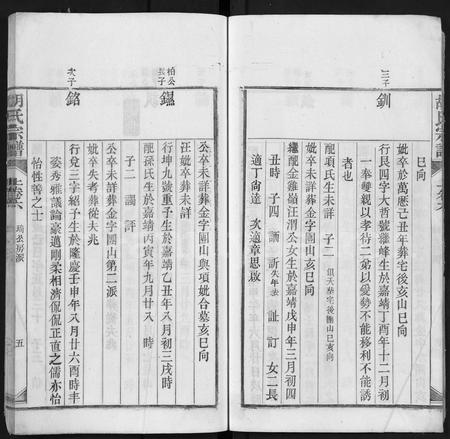 胡氏宗譜
三子
釧
巳向
妣卒於萬歷己丑年葬宅後亥山巳向
行艮四字大晋號雞峰生於嘉靖丁酉年十二月初
一奉雙親以孝待二弟以愛勢不能移利不能誘
者也
配項氏生未詳 子二 俱夭葬宅後蓮山巳亥向
妣卒未詳葬金字團山亥巳向
繼配金雞嶺汪渭公女生於嘉靖戊申年三月初四
丑時 子四 譋 訢失年葬 訨 訂 女二長
適丁尙達 次適章思啟
柏公
長子
鎾
公卒未詳葬金字團山與項妣合墓亥巳向
汪妣卒葬未詳
行坤九號重予生於嘉靖乙丑年八月初三戌時
配孫氏生於嘉靖丙寅年九月廿八 時
子二 謁 評
公卒未詳葬金字團山第二派
妣卒失考葬從夫兆
次子
銘
行兌三字紹予生於隆慶壬申年八月廿六酉時丰
姿秀雅議論豪邁剛柔相濟侃侃正直之儒亦怡
怡性善之士
胡氏宗譜
上卷六
瑞公房派
五